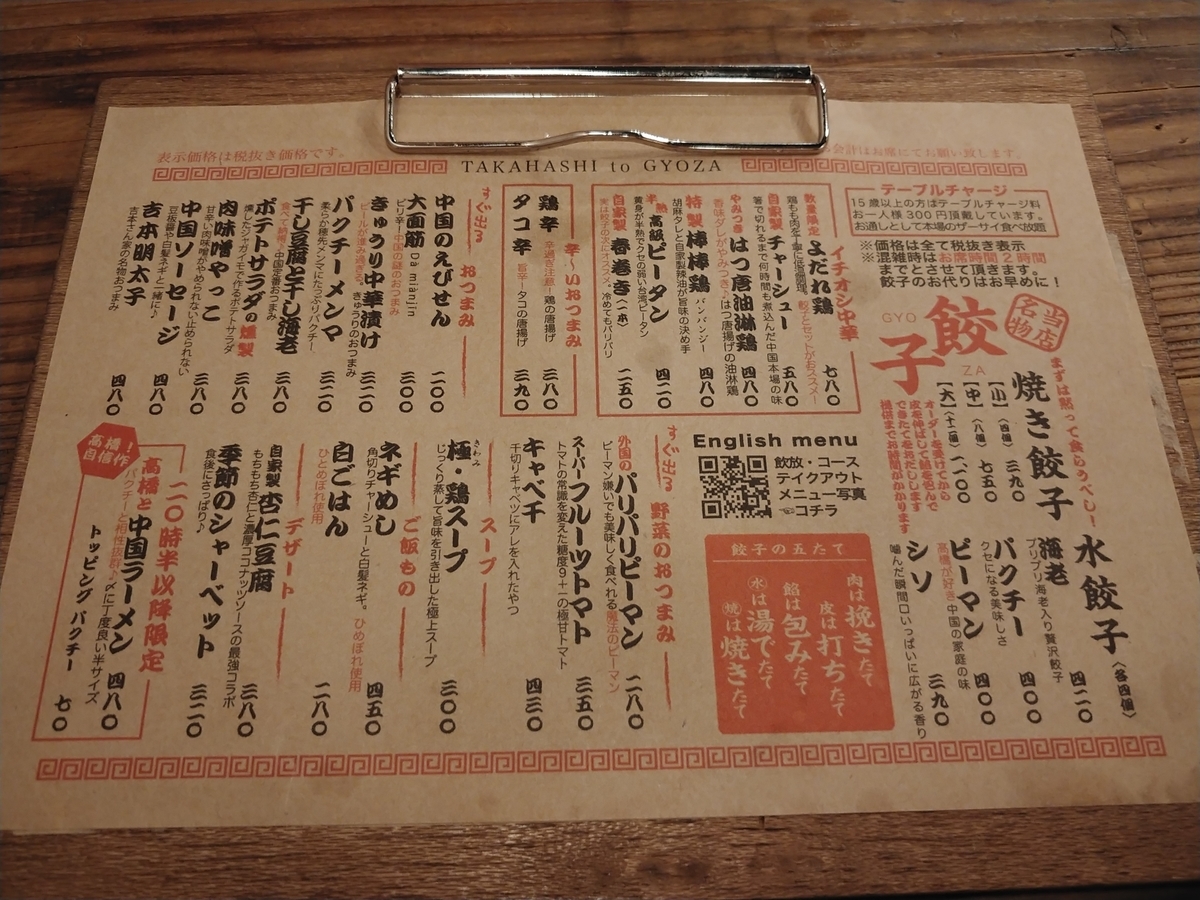 表示価格は税抜き価格です。
TAKAHASHI to GYOZA
会計はお席にてお願い致します。
テーブルチャージ
15歳以上の方はテーブルチャージ料
お一人様300円頂戴しています。
お通しとして本場のザーサイ食べ放題
※価格は全て税抜き表示
※混雑時はお席時間2時間
までとさせて頂きます。
餃子のお代りはお早めに!
当店名物
餃子
GYO
ZA
まずは黙って食らうべし!
焼き餃子
【小】(四個) 三九〇
【中】(八個) 七五〇
【大】(十二個) 一、一〇〇
オーダーを受けてから
皮を伸ばして餡を包んで
できたてをお出しします
提供までお時間がかかります
水餃子(各四個)
海老 四二〇
プリプリ海老入り贅沢餃子
パクチー 四〇〇
クセになる美味しさ
ピーマン 四〇〇
高橋が好き中国の家庭の味
シソ 三九〇
噛んだ瞬間口いっぱいに広がる香り
イチオシ中華
数量限定 よだれ鶏 七八〇
鶏もも肉を丁寧に低温調理。餃子とセットがおススメ!
自家製 チャーシュー 五八〇
箸で切れるまで何時間も煮込んだ中国本場の味
やみつき はつ唐油淋鶏 四八〇
香味ダレがやみつき、はつ唐揚げの油淋鶏
特製 棒棒鶏 バンバンジー 四八〇
胡麻タレと自家製辣油が旨味の決め手
半熟 高級ピータン 四二〇
黄身が半熟でクセの弱い台湾ピータン
自家製 春巻き(一本) 二五〇
実は餃子の次にオススメ。冷めてもパリパリ
辛〜いおつまみ
鶏辛 三八〇
辛過ぎ注意!鶏の唐揚げ
タコ辛 三九〇
旨辛!タコの唐揚げ
すぐ出る おつまみ
中国のえびせん 二〇〇
大面筋 Da mianjin 三〇〇
ピリ辛!中国の謎のおつまみ
きゅうり中華漬け 三二〇
ビールが進み過ぎる。きゅうりのおつまみ
パクチーメンマ 三二〇
柔らか穂先メンマにたっぷりパクチー
干し豆腐と干し海老 三八〇
食べて納得!中国定番おつまみ
ポテトサラダの燻製 三八〇
燻したジャガイモで作るポテトサラダ
肉味噌やっこ 三八〇
甘辛い肉味噌がやめられない止められない
中国ソーセージ 四八〇
豆板醤や白髪ネギと一緒に♪
吉本明太子 四八〇
吉本さん家の名物おつまみ
English menu
飲放・コース
テイクアウト
メニュー写真
☜コチラ
餃子の五たて
肉は挽きたて
皮は打ちたて
餡は包みたて
(水)は湯でたて
(焼)は焼きたて
すぐ出る 野菜のおつまみ
外国のパリパリピーマン 二八〇
ピーマン嫌いでも美味しく食べれる魔法のピーマン
スーパーフルーツトマト 三五〇
トマトの常識を変えた糖度9+−の極甘トマト
キャベ千 四三〇
千切りキャベツにアレを入れたやつ
スープ
極・鶏スープ 三〇〇
きわみ
じっくり蒸して旨味を引き出した極上スープ
ご飯もの
ネギめし 四五〇
角切りチャーシューと白髪ネギ。ひとめぼれ使用
白ごはん 二八〇
ひとめぼれ使用
デザート
自家製 杏仁豆腐 三八〇
もちもち杏仁と濃厚ココナッツソースの最強コラボ
季節のシャーベット 三二〇
食後にさっぱり♪
高橋!自信作
二〇時半以降限定
高橋と中国ラーメン 四八〇
パクチーと相性抜群♪〆に丁度良い半サイズ
トッピング パクチー 七〇